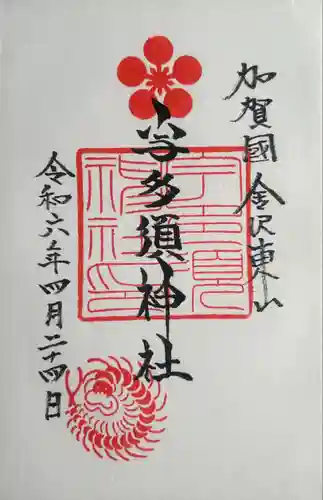 加賀國金沢東山
宇多須神社
令和六年四月二十四日